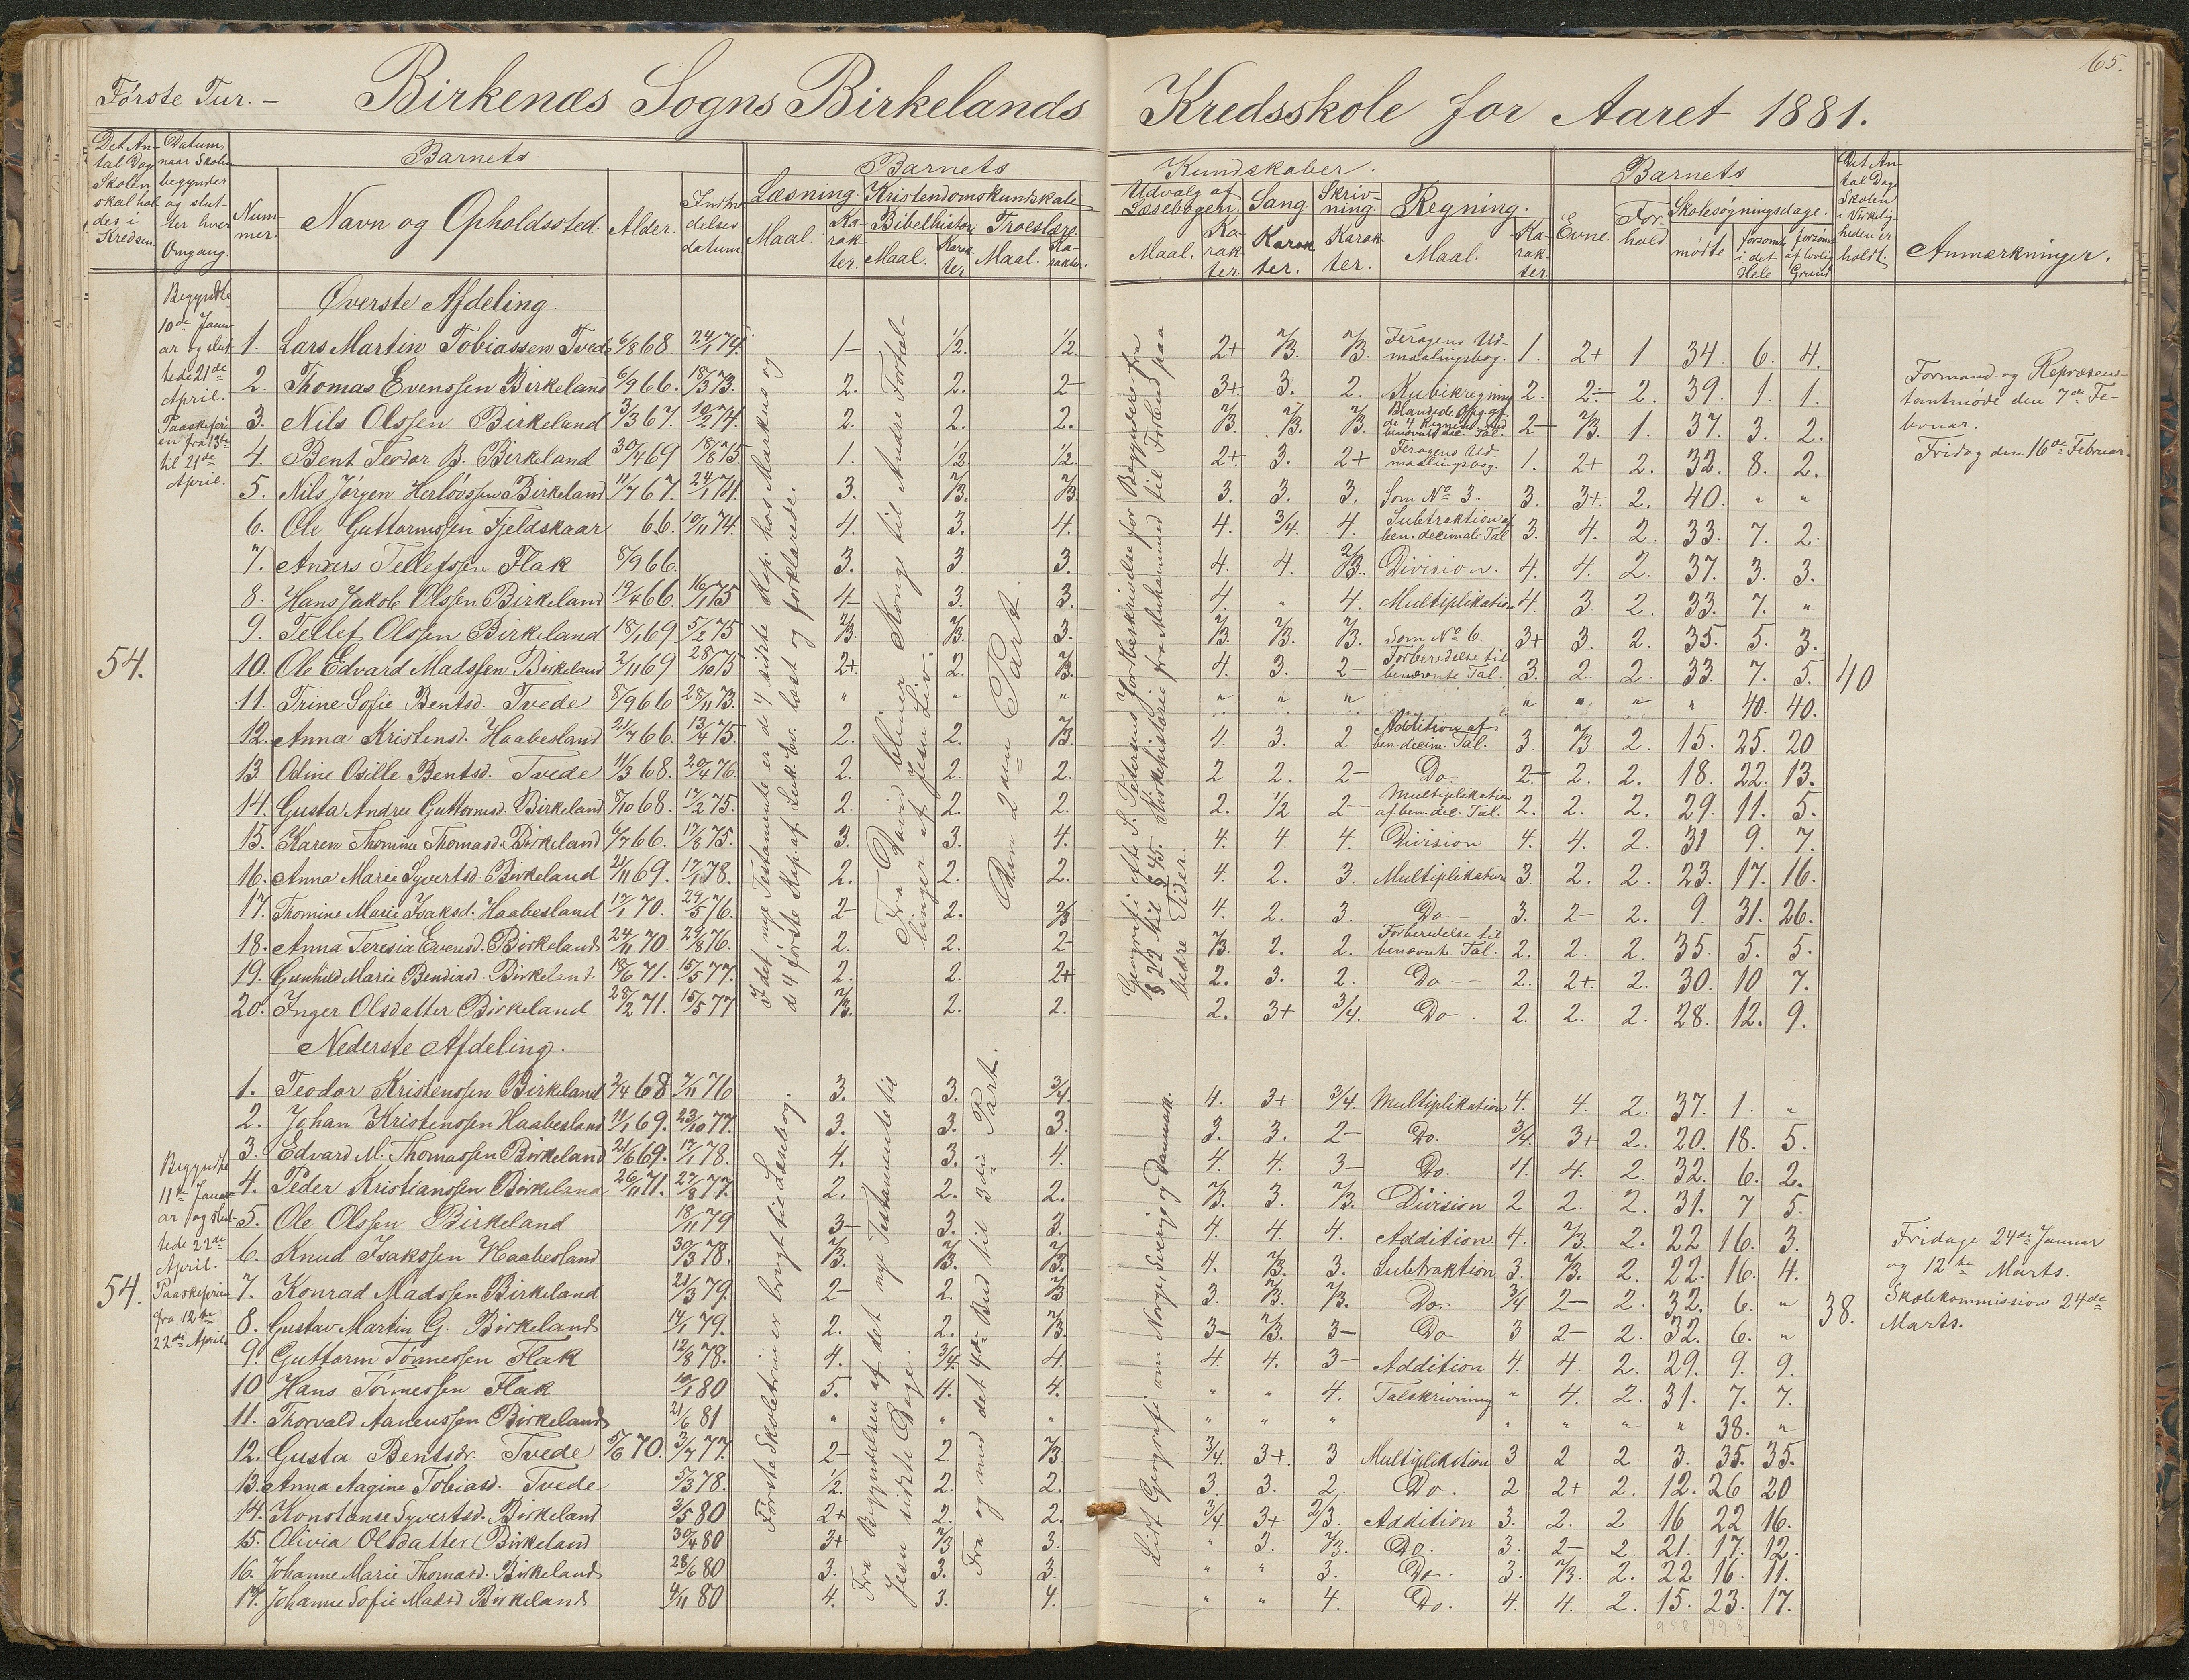 65.
Første Tur. – Birkenæs Sogns Birkelands Kredsskole for Aaret 1881.
Det Antal Dage Skolen skal holdes i Kredsen
Datum, naar Skolen begynder og slutter hver Omgang.
Barnets
Nummer. Navn og Opholdssted. Alder. Indtrædelsesdatum.
Barnets Kundskaber.
Læsning. Kristendomskundskab
Maal. Karakter. Bibelhistori Troeslære
Maal. Karakter Maal. Karakter.
Udvalg af Læsebogen. Sang. Skrivning. Regning.
Maal. Karakter Karakter. Karakter. Maal. Karakter
Barnets
Evne. Forhold. Skolesøgningsdage.
mødte forsømte i det Hele forsømt af lovlig Grund
Det Antal Dage Skolen i Virkeligheden er holdt.
Anmærkninger.
Begyndte 10de Januar og sluttede 21de April.
Paaskeferien fra 13de til 21de April.
54.
Øverste Afdeling.
I det nye Testamente er de 4 sidste Kap. hos Markus og de 4 første Kap. af Luk. Ev. læst og forklarede.
Fra David bliver Konge til Andre Fortællinger af Jesu Liv.
Den 2den Part.
Geografi efter S. Petersens Jordbeskrivelse for Begyndere fra § 22 til § 45. Kirkehistorie fra Muhammed til Forbud paa bedre Tider.
1. Lars Martin Tobiassen Tvede 6/8 68. 24/1 74. 1– 1/2. 1/2. 2+ 2/3. 2/3. Feragens Udmaalingsbog. 1. 2+ 1 34. 6. 4.
2. Thomas Evenssen Birkeland 6/9 66. 18/3 73. 2. 2. 2– 3+ 3. 2. Kubikregning 2. 2– 2. 39. 1. 1.
3. Nils Olssen Birkeland 3/3 67. 10/2 74. 2. 2. 2. 2/3. 2/3. 2/3 Blandede Opg. af de 4 Regnem. med benævnte dec. Tal. 2– 2/3. 1. 37. 3. 2.
4. Bent Teodor B. Birkeland 30/4 69 18/8 75. 1. 1/2 1/2. 2+ 3. 2+ Feragens Udmaalingsbog. 1. 2+ 2. 32. 8. 2.
5. Nils Jørgen Herlovssen Birkeland 11/7 67. 24/1 74. 3. 2/3. 2/3. 3. 3. 3. Som No 3. 3. 3+. 2. 40. " "
6. Ole Guttormssen Fjeldskaar 66. 10/11 74. 4. 3. 4. 4. 3/4. 4. Subtraktion af ben. decimale Tal 3. 4. 2. 33. 7. 2.
7. Anders Tellefssen Flak 8/9 66. 3. 3. 3. 4. 4. 2/3. Division. 4. 4. 2. 37. 3. 3.
8. Hans Jakob Olssen Birkeland 19/4 66. 16/1 75 4– 3. 3. 4. " 4. Multiplikation 4. 3. 2. 33. 7. "
9. Tellef Olssen Birkeland 18/1 69 5/2 75 2/3. 2/3. 3. 2/3. 2/3. 2/3. Som No 6. 3+ 3. 2. 35. 5. 3.
10. Ole Edvard Madssen Birkeland 2/11 69 28/10 75 2+. 2. 2/3. 4. 3. 2– Forberedelse til benævnte Tal. 3. 2. 2. 33. 7. 5. 40
11. Trine Sofie Bentsd. Tvede 8/9 66 28/11 73. " " " " " " " " " " 40. 40.
12. Anna Kristensd. Haabesland 21/7 66. 13/4 75. 2. 2. 2/3. 4. 3. 2 Addition af ben. decim. Tal. 3. 2/3. 2. 15. 25. 20
13. Odine Osille Bentsd. Tvede 11/3 68. 20/4 76. 2. 2. 2. 2 2. 2– Do. 2– 2. 2. 18. 22. 13.
14. Gusta Andrea Guttormsd. Birkeland 8/10 68. 12/2 75. 2. 2. 2. 2. 1/2 2– Multiplikation af ben. dec. Tal. 2. 2. 2. 29. 11. 5.
15. Karen Thomine Thomasd. Birkeland 6/7 66. 17/8 75. 3. 3. 4. 4. 4. 4. Division 4. 4. 2. 31 9. 7.
16. Anna Marie Syvertsd. Birkeland 21/11 69. 17/1 78. 2. 2. 2. 4. 2. 3. Multiplikation 3. 2. 2. 23. 17. 16.
17. Thomine Marie Isaksd. Haabesland 17/1 70. 24/5 76. 2– 2. 2/3 4. 2. 3. Do – 3. 2– 2. 9. 31. 26.
18. Anna Teresia Evensd. Birkeland 24/11 70. 29/8 76. 2. 2. 2– 2/3. 2. 2. Forberedelse til benævnte Tal. 2. 2. 2. 35. 5. 5.
19. Gunhild Marie Bendixd. Birkeland. 18/6 71. 15/5 77. 2. 2. 2+ 2. 3. 2. Do – 2. 2+. 2. 30. 10 7.
20. Inger Olsdatter Birkeland 28/2 71. 15/5 77 2/3. 2. 2. 2. 3+ 3/4. Do – . 2. 2. 2. 28. 12. 9.
Formand og Repræsentantmøde den 7de Februar.
Fridag den 16de Februar.
Nederste Afdeling.
Begyndte 11te Januar og sluttede 22de April.
Paaskeferien fra 12te 22de April.
54.
Første Skoletrin er brugt til Læsebog.
Fra Begyndelsen af det nye Testamente til Jesu sidste Dage.
Fra og med det 4de Bud til 3die Part.
Lidt Geografi om Norge, Sverig og Danmark.
1. Teodor Kristenssen Birkeland 2/4 68 2/11 76 3. 3. 3/4. 4. 3+ 3/4. Multiplikation 4. 4. 2. 37. 1. "
2. Johan Kristenssen Haabesland 11/1 69. 23/10 77. 3. 3. 3. 3. 3. 2– Do. 3/4. 3+ 2. 20. 18. 5.
3. Edvard M. Thomassen Birkeland 21/6 69. 17/1 78. 4. 3. 4. 4. 4. 3– Do. 4. 4. 2. 32. 6. 2.
4. Peder Kristianssen Birkeland 26/11 71. 27/8 77. 2. 2. 2. 2/3. 3. 2/3. Division 2 2. 2. 31. 7 5.
5. Ole Olssen Birkeland 18/11 79 3– 3. 3. 4. 4. 4. Addition 4. 2/3. 2. 22 16. 3.
6. Knud Isakssen Haabesland 30/3 78. 2/3. 2/3. 2/3. 4. 2/3. 3. Subtraktion 3. 2/3. 2. 22. 16. 4.
7. Konrad Madssen Birkeland 21/3 79. 2– 2. 2/3 3. 2/3. 2/3. Do. 3/4 2– 2. 32. 6. "
8. Gustav Martin G. Birkeland 14/1 79. 2. 2. 2/3. 3– 2/3. 3– Do – 3 2– 2. 32. 6. " 38.
9. Guttorm Tønnessen Flak 12/8 78. 4. 3/4. 4. 4. 4. 3– Addition 4. 4 2. 29. 9. 9.
10 Hans Tørnessen Flak 19/1 80 5. 4. 4. " " 4. Talskrivning " 4. 2. 31. 7. 7.
11. Thorvald Aanenssen Birkeland 21/6 81 " " " " " " " " " " 38. "
12. Gusta Bentsdr. Tvede 5/6 70. 3/7 77. 2– 2. 2/3 3/4. 3+. 3 Multiplikation 3 2 2 3. 35. 35.
13. Anna Aagine Tobiasd. Tvede 5/3 78. 1/2. 2. 2. 3. 3. 2. Do. 2 2+ 2. 12. 26 20
14. Konstanse Syvertsd. Birkeland 3/5 80 2+ 2. 2. 3/4. 3+ 2/3. Addition 3. 2. 2 16 22 16.
15. Olivia Olsdatter Birkeland 30/4 80 3+ 2/3 3. " 3. 2/3. Do. 3. 2– 2. 21. 17. 12.
16. Johanne Marie Thomasd. Birkeland 28/6 80 3. 3. 3. " " 3. Do. 3. 2/3. 2. 22 16. 11.
17. Johanne Sofie Madsd Birkeland 4/11 80 4. 3. 4. " " 4. Do. 4. 4. 2. 15. 23. 17.
Fridage 24de Januar og 12te Marts.
Skolekommission 24de Marts.